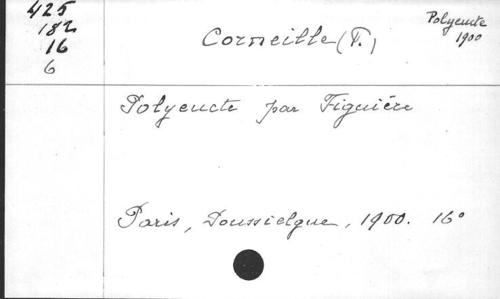 425
182
16
6
Corneille (P.)
Polyeucte
1900
Polyeucte par Figuière
Paris, Poussielgue, 1900. 16°